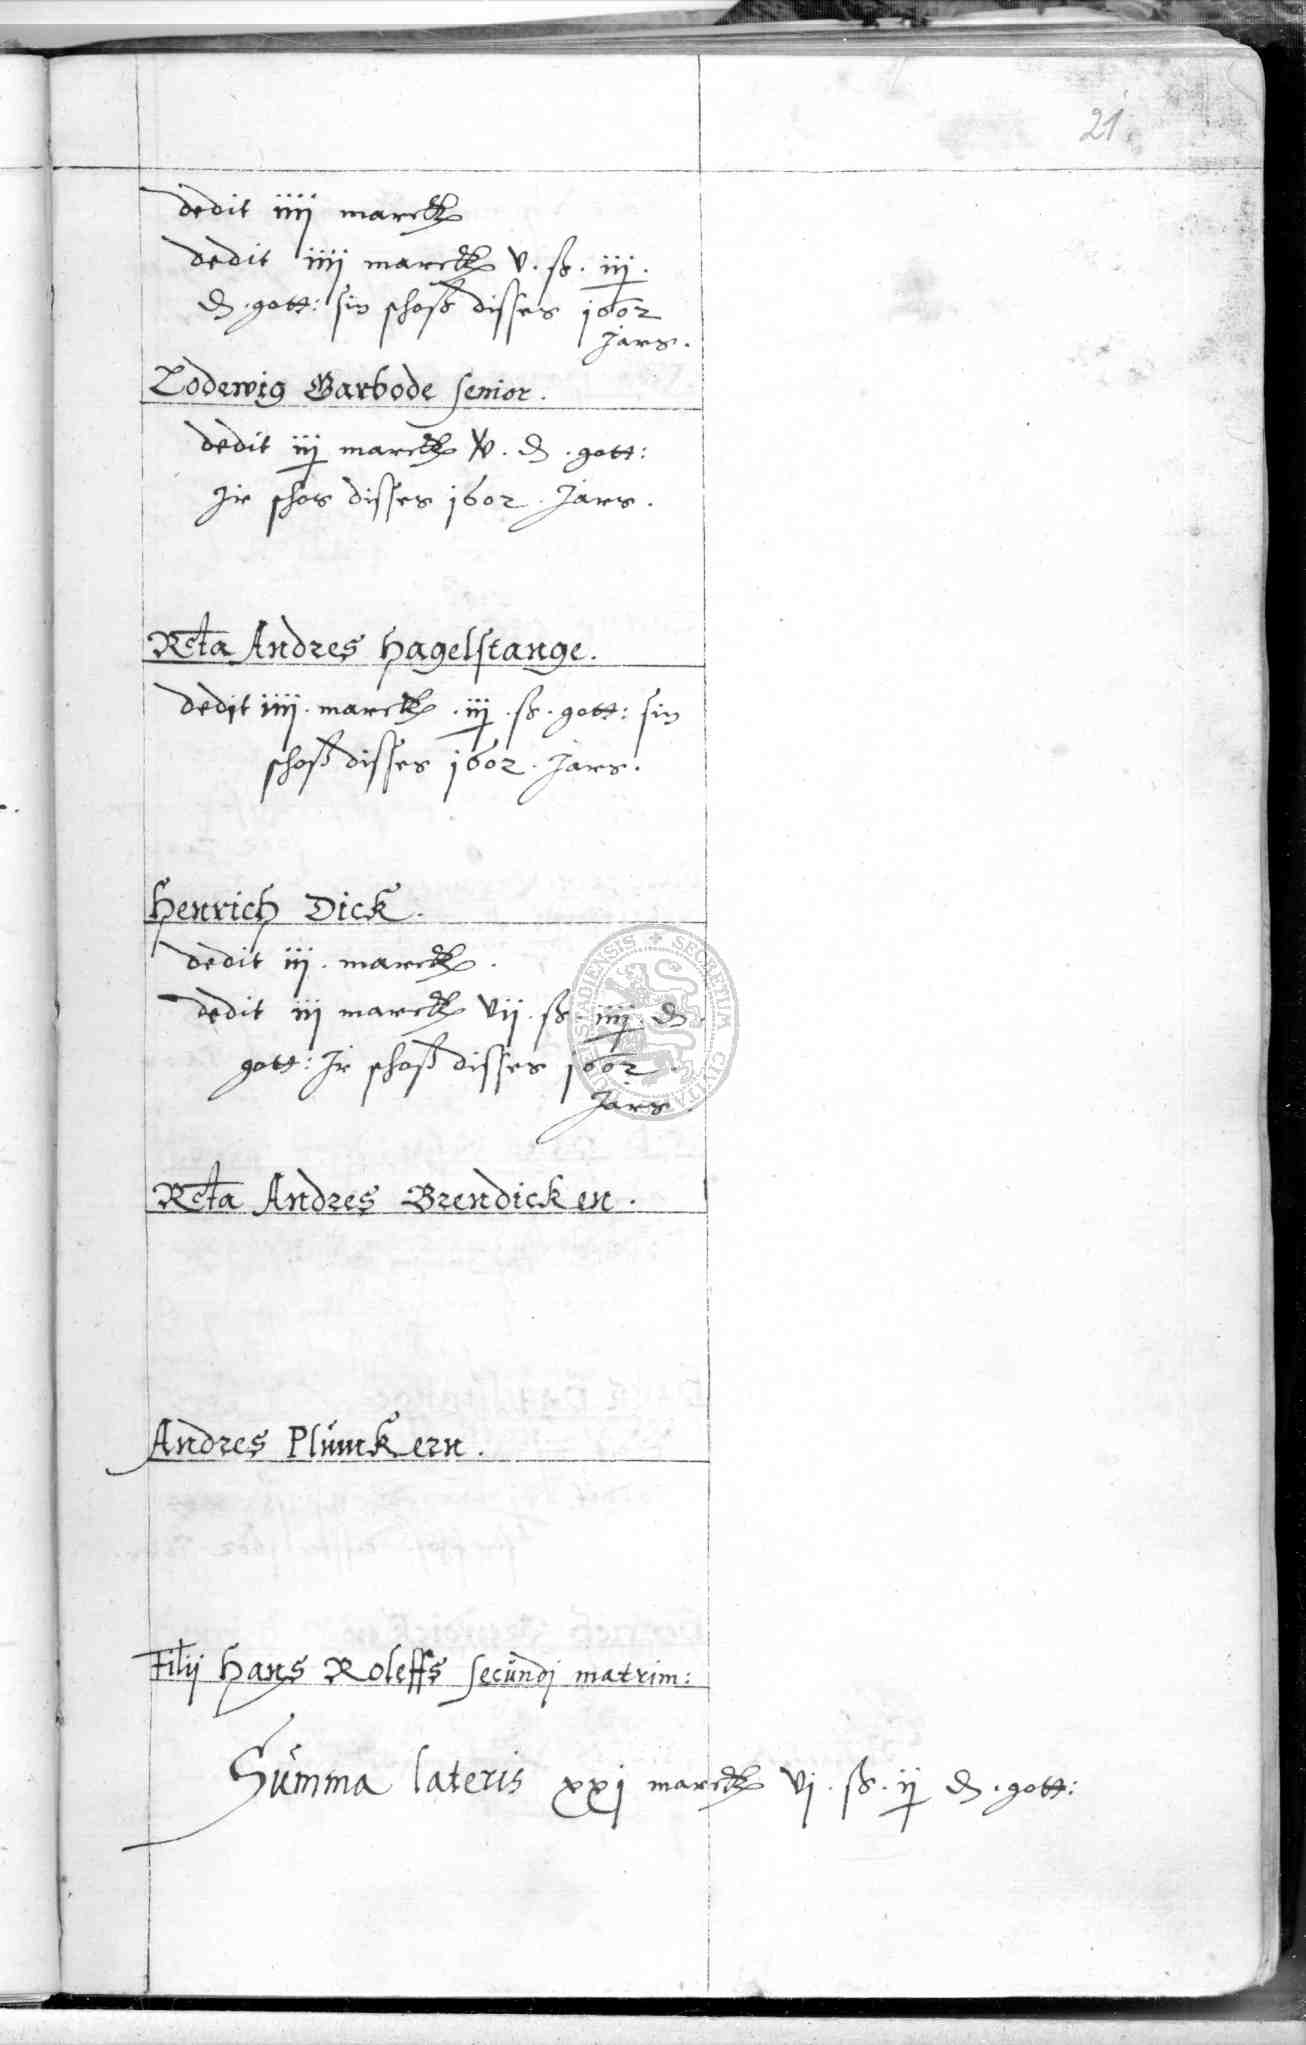 21
dedit iiij marck
dedit iiij marck v. ß. iij.
₰. gott: sin schoß disses 1602
Jars.
Lodewig Garbode senior.
dedit iij marck v. ₰. gott:
Jr schos disses 1602. Jars.
Rcta Andres Hagelstange.
dedit iiij. marck. iij. ß. gott: sin
schoß disses 1602. Jars.
Henrich Dick.
dedit iij. marck.
dedit iij marck vij. ß. iiij. ₰.
gott: Jr schoß disses 1602.
Jars.
Rcta Andres Brendicken.
Andres Plümckern.
Filij Hans Roleffs secundj matrim:
Summa lateris xxj marck vj. ß. ij ₰. gott:
SECRETUM CIVITATIS